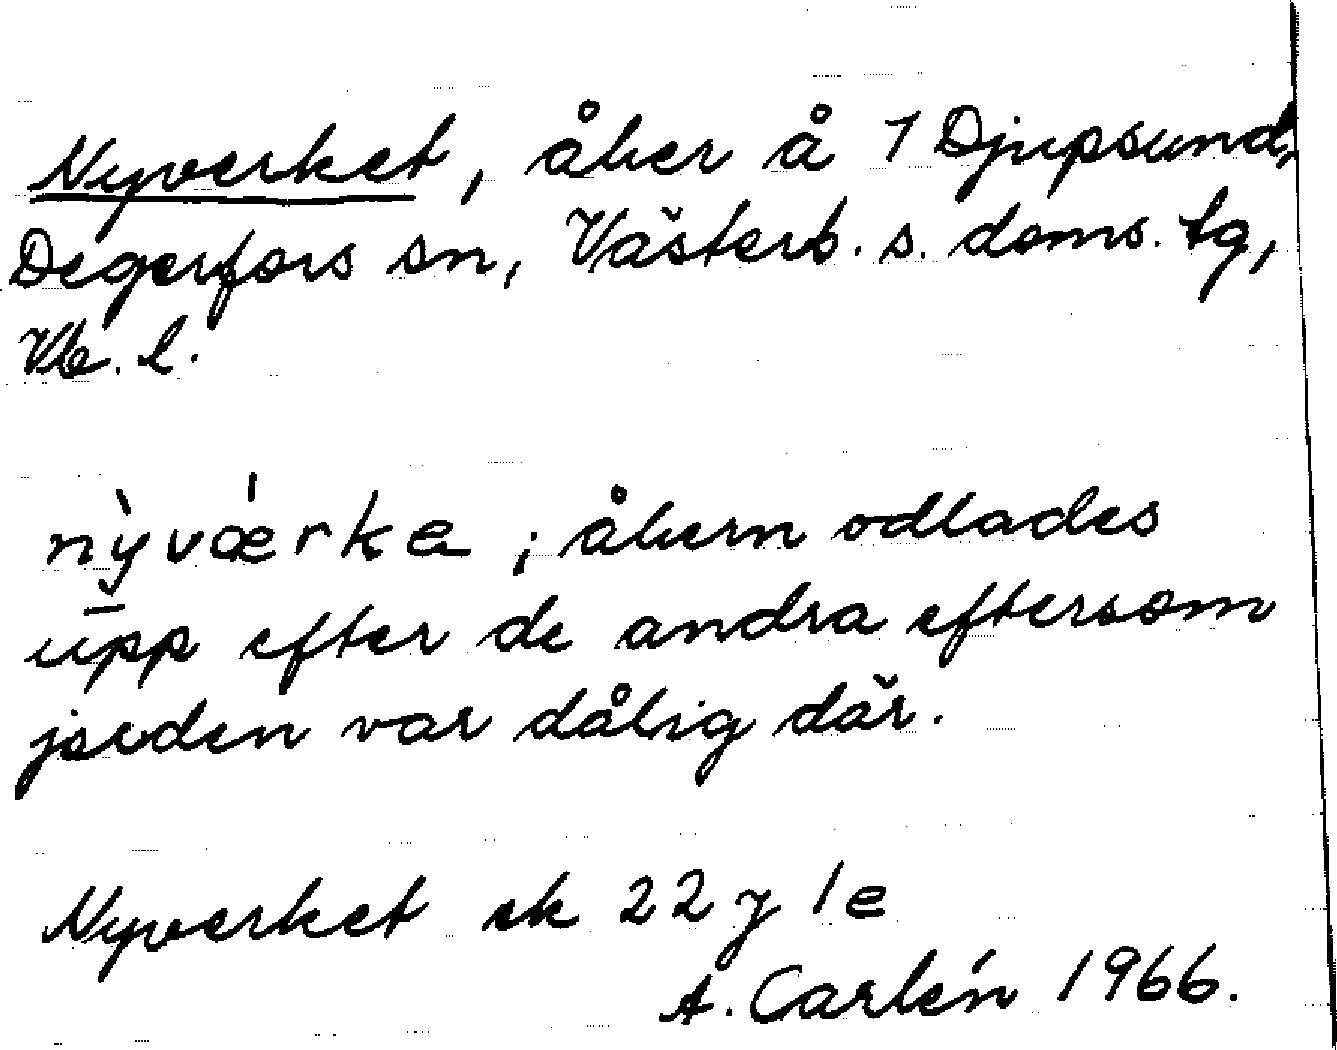 Nyverket, åker å 1 Djupsund,
Degerfors sn, Västerb. s. doms. tg,
Vb. l.
nỳværka ; åkern odlades
upp efter de andra eftersom
jorden var dålig där.
Nyverket ek 22 y 1 e
A. Carlén 1966.